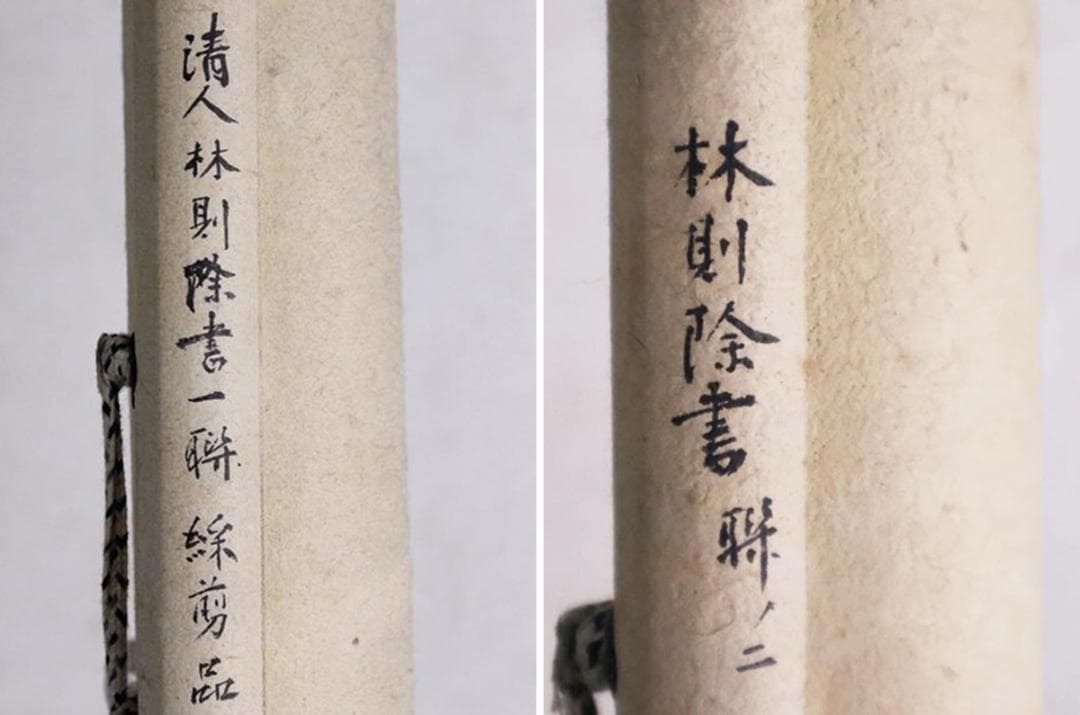 清人林則除書一聯 綵剪品
林則除書 聯ノ二